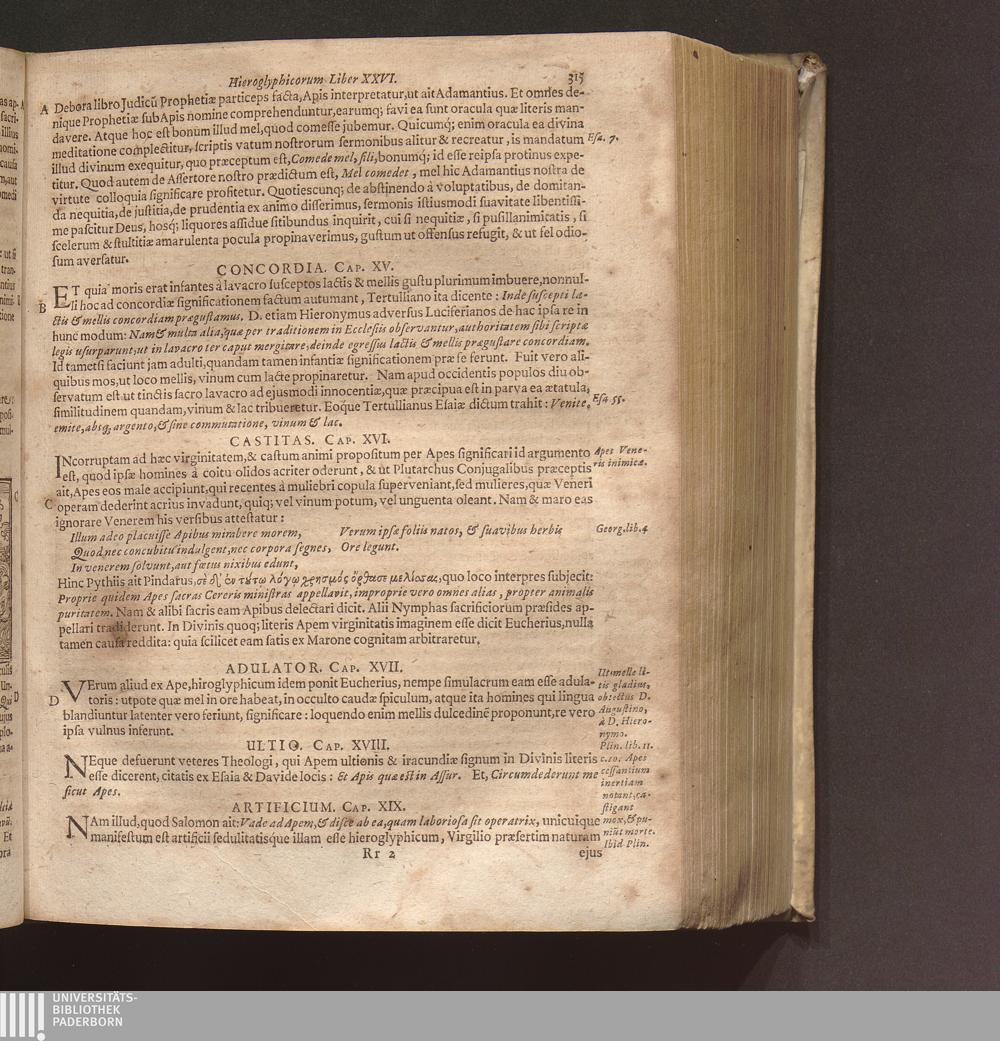 Hieroglyphicorum Liber XXVI. 315
A Debora libro Judicũ Prophetiæ particeps facta, Apis interpretatur, ut ait Adamantius. Et omnes de-
nique Prophetiæ sub Apis nomine comprehenduntur, earumq; favi ea sunt oracula quæ literis man-
davere. Atque hoc est bonum illud mel, quod comesse jubemur. Quicumq; enim oracula ea divina
meditatione complectitur, scriptis vatum nostrorum sermonibus alitur & recreatur, is mandatum
Esa. 7.
illud divinum exequitur, quo præceptum est, Comede mel, fili, bonumq; id esse reipsa protinus expe-
titur. Quod autem de Assertore nostro prædictum est, Mel comedet, mel hic Adamantius nostra de
virtute colloquia significare profitetur. Quotiescunq; de abstinendo à voluptatibus, de domitan-
da nequitia, de justitia, de prudentia ex animo disserimus, sermonis istiusmodi suavitate libentissi-
me pascitur Deus, hosq; liquores assidue sitibundus inquirit, cui si nequitiæ, si pusillanimitatis, si
scelerum & stultitiæ amarulenta pocula propinaverimus, gustum ut offensus refugit, & ut fel odio-
sum aversatur.
CONCORDIA. CAP. XV.
ET quia moris erat infantes à lavacro susceptos lactis & mellis gustu plurimum imbuere, nonnul-
B li hoc ad concordiæ significationem factum autumant, Tertulliano ita dicente: Inde suscepti la-
ctis & mellis concordiam prægustamus. D. etiam Hieronymus adversus Luciferianos de hac ipsa re in
hunc modum: Nam & multa alia, quæ per traditionem in Ecclesiis observantur, authoritatem sibi scriptæ
legis usurparunt; ut in lavacro ter caput mergitare, deinde egressis lactis & mellis prægustare concordiam.
Id tametsi faciunt jam adulti, quandam tamen infantiæ significationem præ se ferunt. Fuit vero ali-
quibus mos, ut loco mellis, vinum cum lacte propinaretur. Nam apud occidentis populos diu ob-
servatum est ut tinctis sacro lavacro ad ejusmodi innocentiæ, quæ præcipua est in parva ea ætatula,
similitudinem quandam, vinum & lac tribueretur. Eoque Tertullianus Esaiæ dictum trahit: Venite,
Esa. 55.
emite, absq; argento, & sine commutatione, vinum & lac.
CASTITAS. CAP. XVI.
INcorruptam ad hæc virginitatem, & castum animi propositum per Apes significari id argumento
Apes Vene-
ris inimicæ.
est, quod ipsæ homines à coitu olidos acriter oderunt, & ut Plutarchus Conjugalibus præceptis
ait, Apes eos male accipiunt, qui recentes à muliebri copula superveniant, sed mulieres, quæ Veneri
C operam dederint acrius invadunt, quiq; vel vinum potum, vel unguenta oleant. Nam & maro eas
ignorare Venerem his versibus attestatur:
Illum adeo placuisse Apibus mirabere morem,
Quod nec concubitu indulgent, nec corpora segnes,
In venerem solvunt, aut fœtus nixibus edunt,
Verum ipsæ foliis natos, & suavibus herbis
Ore legunt.
Georg. lib. 4
Hinc Pythiis ait Pindarus, σὲ δ' ἐν τούτῳ λόγῳ χρησμός ὄρθασε μελίσσας, quo loco interpres subjecit:
Proprie quidem Apes sacras Cereris ministras appellavit, improprie vero omnes alias, propter animalis
puritatem. Nam & alibi sacris eam Apibus delectari dicit. Alii Nymphas sacrificiorum præsides ap-
pellari tradiderunt. In Divinis quoq; literis Apem virginitatis imaginem esse dicit Eucherius, nulla
tamen causa reddita: quia scilicet eam satis ex Marone cognitam arbitraretur.
ADULATOR. CAP. XVII.
VErum aliud ex Ape, hiroglyphicum idem ponit Eucherius, nempe simulacrum eam esse adula-
D toris: utpote quæ mel in ore habeat, in occulto caudæ spiculum, atque ita homines qui lingua
blandiuntur latenter vero feriunt, significare: loquendo enim mellis dulcedinẽ proponunt, re vero
ipsa vulnus inferunt.
Ut melle li-
tis gladius,
obtectus D.
Augustino,
à D. Hiero-
nymo.
ULTIO. CAP. XVIII.
NEque defuerunt veteres Theologi, qui Apem ultionis & iracundiæ signum in Divinis literis
esse dicerent, citatis ex Esaia & Davide locis: Et Apis quæ est in Assur. Et, Circumdederunt me
sicut Apes.
Plin. lib. 11.
c. 10. Apes
cessantium
inertiam
notant, ca-
stigant
mox, & pu-
niũt morte.
Ibid Plin.
ARTIFICIUM. CAP. XIX.
NAm illud, quod Salomon ait: Vade ad Apem, & disce ab ea, quam laboriosa sit operatrix, unicuique
manifestum est artificii sedulitatisque illam esse hieroglyphicum, Virgilio præsertim naturam
Rr 2 ejus
UNIVERSITÄTS-
BIBLIOTHEK
PADERBORN